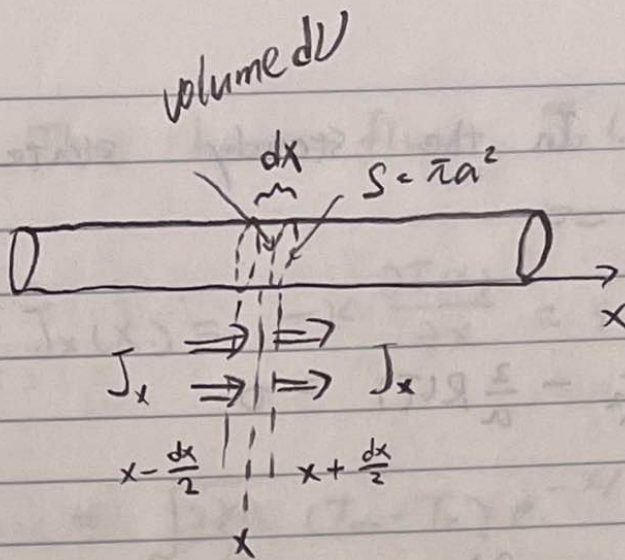 volume dV
dx
S = πa²
x
Jₓ Jₓ
x - dx/2 x + dx/2
x